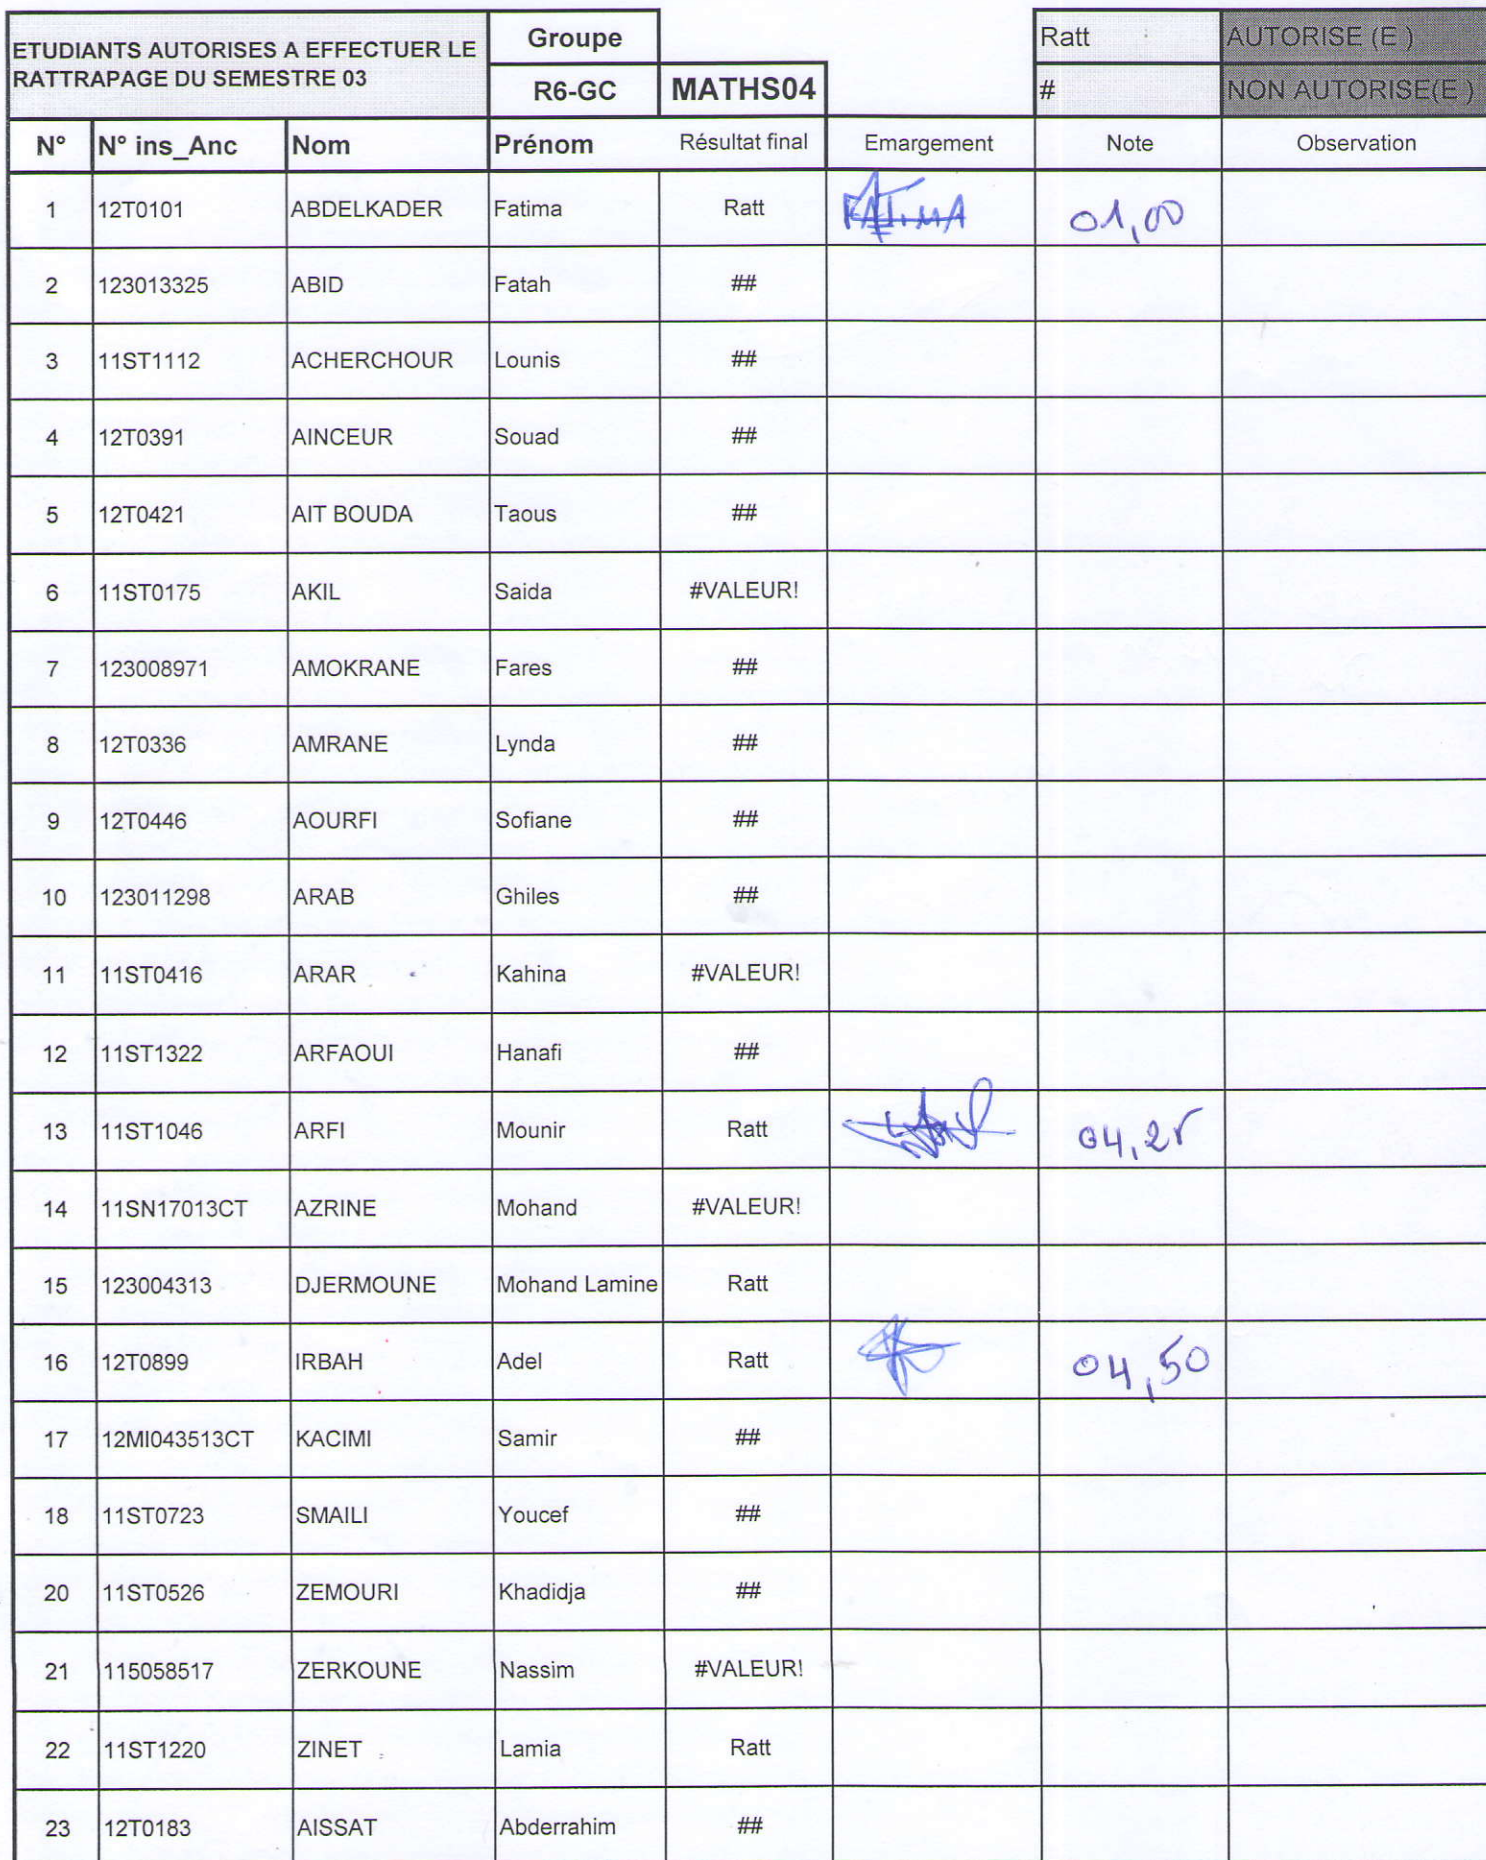 ETUDIANTS AUTORISES A EFFECTUER LE RATTRAPAGE DU SEMESTRE 03
Groupe
R6-GC MATHS04
Ratt AUTORISE (E )
# NON AUTORISE(E )
N° N° ins_Anc Nom Prénom Résultat final Emargement Note Observation
1 12T0101 ABDELKADER Fatima Ratt FATIMA 01,00
2 123013325 ABID Fatah ##
3 11ST1112 ACHERCHOUR Lounis ##
4 12T0391 AINCEUR Souad ##
5 12T0421 AIT BOUDA Taous ##
6 11ST0175 AKIL Saida #VALEUR!
7 123008971 AMOKRANE Fares ##
8 12T0336 AMRANE Lynda ##
9 12T0446 AOURFI Sofiane ##
10 123011298 ARAB Ghiles ##
11 11ST0416 ARAR Kahina #VALEUR!
12 11ST1322 ARFAOUI Hanafi ##
13 11ST1046 ARFI Mounir Ratt 04,25
14 11SN17013CT AZRINE Mohand #VALEUR!
15 123004313 DJERMOUNE Mohand Lamine Ratt
16 12T0899 IRBAH Adel Ratt 04,50
17 12MI043513CT KACIMI Samir ##
18 11ST0723 SMAILI Youcef ##
20 11ST0526 ZEMOURI Khadidja ##
21 115058517 ZERKOUNE Nassim #VALEUR!
22 11ST1220 ZINET Lamia Ratt
23 12T0183 AISSAT Abderrahim ##